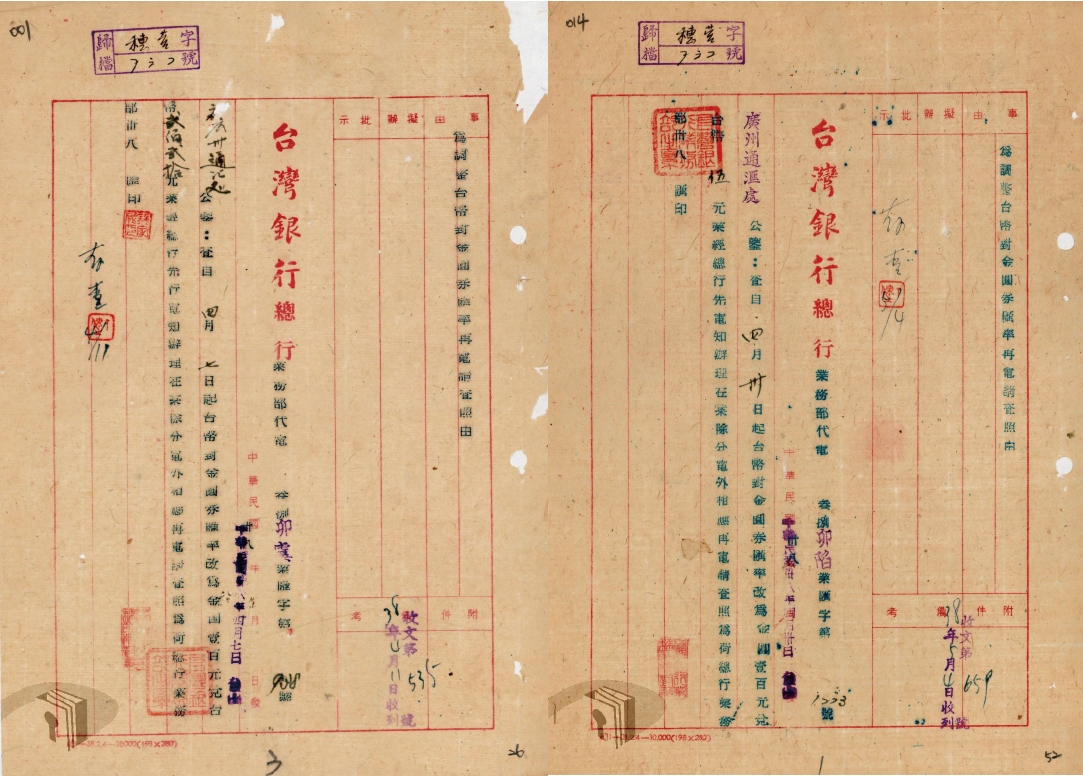 001
歸檔 穗営字號
733
事由 擬辦 批示
為調整台幣對金圓券匯率再電請查照由
台灣銀行總行 業務部代電
叁捌卯虞業匯字第 號
中華民國卅八年四月七日
廣州通汇处 公鑒:查自四月七日起台幣對金圓券匯率改為金圓壹百元兌台
幣貳佰貳拾元業經總行先行電知辦理在案除分電外相應再電請查照為荷總行業務
部卅八 匯印
存查
4/11
附件 備考
收文第535號
38年4月11日收到
28.2.4—30,000(198×280)
3
26
014
歸檔 穗営字號
733
事由 擬辦 批示
為調整台幣對金圓券匯率再電請查照由
存查
5/4
台灣銀行總行 業務部代電
叁捌卯陷業匯字第1333號
中華民國卅八年四月卅日
廣州通滙處 公鑒:查自四月卅日起台幣對金圓券匯率改為金圓壹百元兌
台幣伍元業經總行先電知辦理在案除分電外相應再電請查照為荷總行業務
部卅八 匯印
附件 備考
收文第659號
38年5月4日收到
30,000(198×280)
1
52